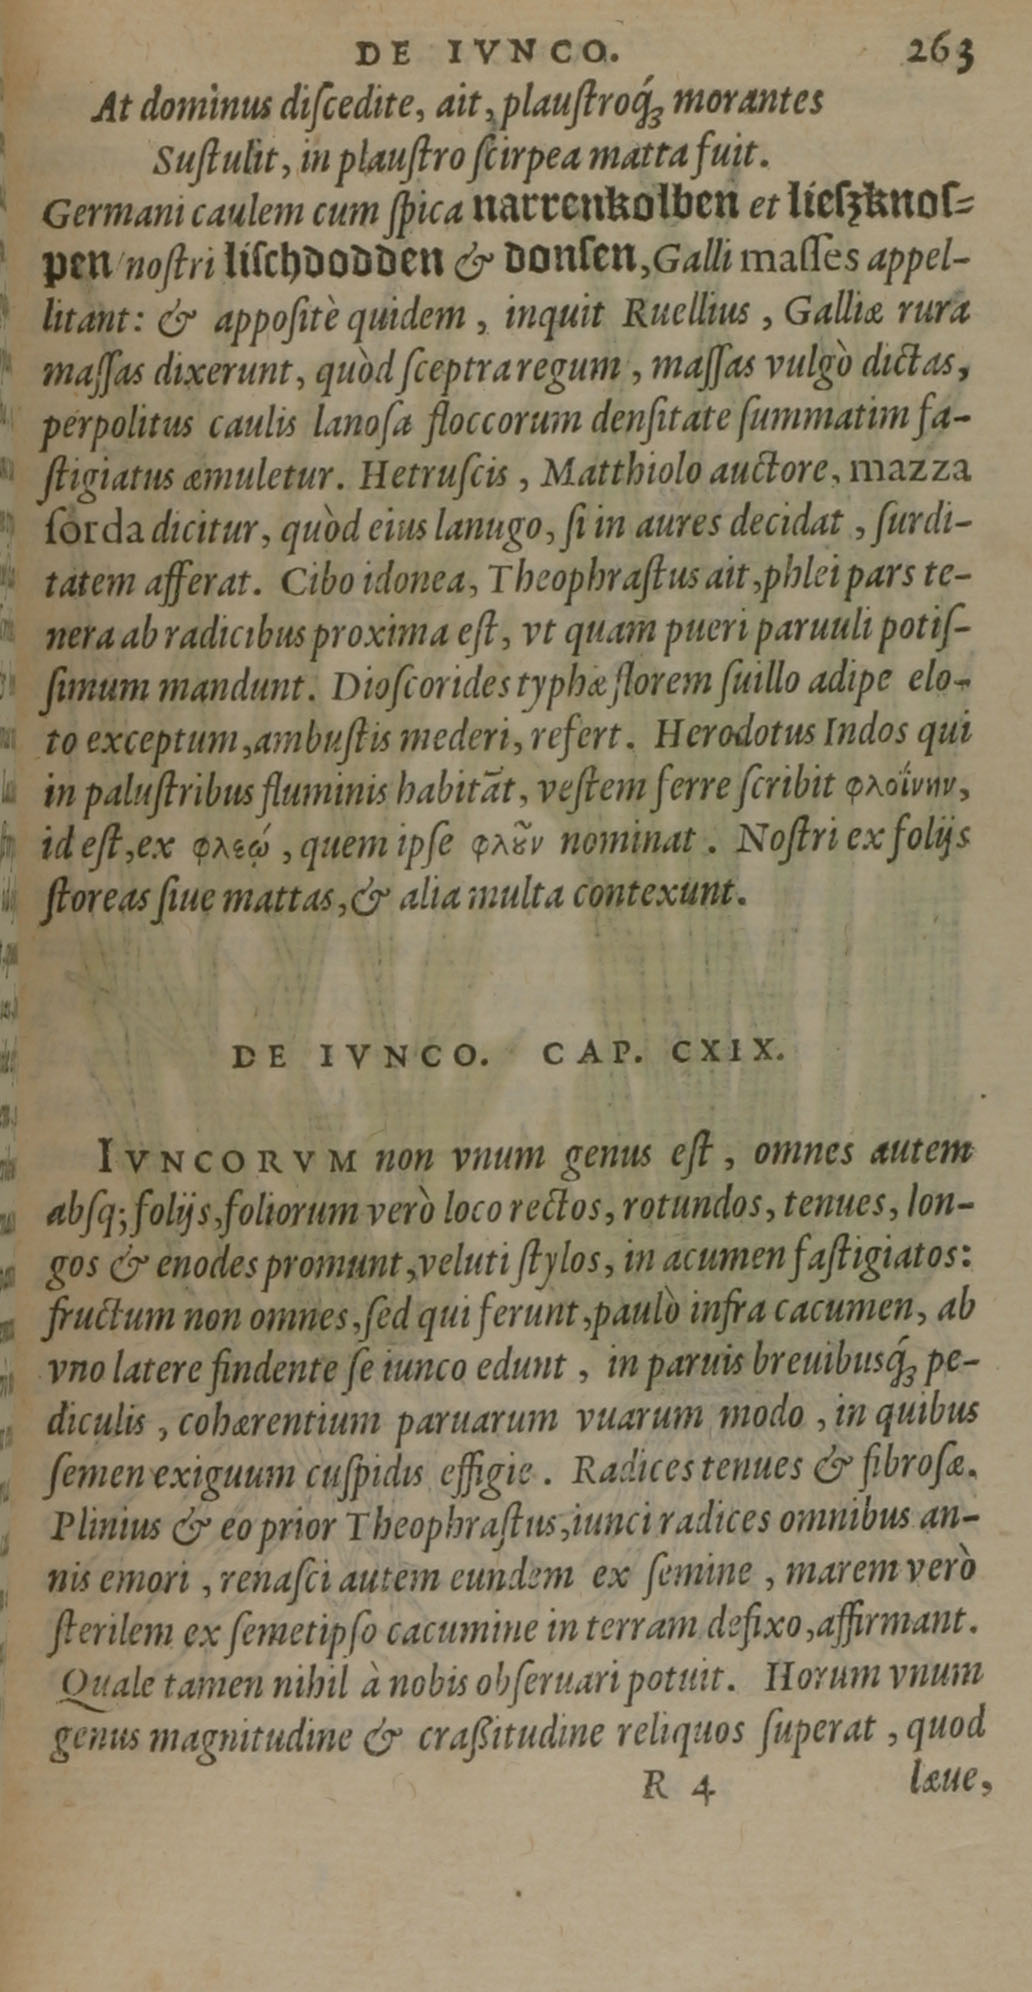 DE IVNCO. 263
At dominus diſcedite, ait, plauſtroq́ꝫ morantes
Suſtulit, in plauſtro ſcirpea matta fuit.
Germani caulem cum ſpica narrenkolben et lieſzknoſ⸗
pen/noſtri liſchdodden & donſen, Galli maſſes appel-
litant: & appoſitè quidem, inquit Ruellius, Galliæ rura
maſſas dixerunt, quòd ſceptra regum, maſſas vulgò dictas,
perpolitus caulis lanoſa floccorum denſitate ſummatim fa-
ſtigiatus æmuletur. Hetruſcis, Matthiolo auctore, mazza
ſorda dicitur, quòd eius lanugo, ſi in aures decidat, ſurdi-
tatem afferat. Cibo idonea, Theophraſtus ait, phlei pars te-
nera ab radicibus proxima eſt, vt quam pueri paruuli potiſ-
ſimum mandunt. Dioſcorides typhæ florem ſuillo adipe elo-
to exceptum, ambuſtis mederi, refert. Herodotus Indos qui
in paluſtribus fluminis habitāt, veſtem ferre ſcribit φλοΐνην,
id eſt, ex φλεῴ, quem ipſe φλȣ͂ν nominat. Noſtri ex folijs
ſtoreas ſiue mattas, & alia multa contexunt.
DE IVNCO. CAP. CXIX.
IVNCORVM non vnum genus eſt, omnes autem
abſq; folijs, foliorum verò loco rectos, rotundos, tenues, lon-
gos & enodes promunt, veluti ſtylos, in acumen faſtigiatos:
fructum non omnes, ſed qui ferunt, paulò infra cacumen, ab
vno latere findente ſe iunco edunt, in paruis breuibusq́ꝫ pe-
diculis, cohærentium paruarum vuarum modo, in quibus
ſemen exiguum cuſpidis effigie. Radices tenues & fibroſæ.
Plinius & eo prior Theophraſtus, iunci radices omnibus an-
nis emori, renaſci autem eundem ex ſemine, marem verò
ſterilem ex ſemetipſo cacumine in terram defixo, affirmant.
Quale tamen nihil à nobis obſeruari potuit. Horum vnum
genus magnitudine & craßitudine reliquos ſuperat, quod
R 4 læue,